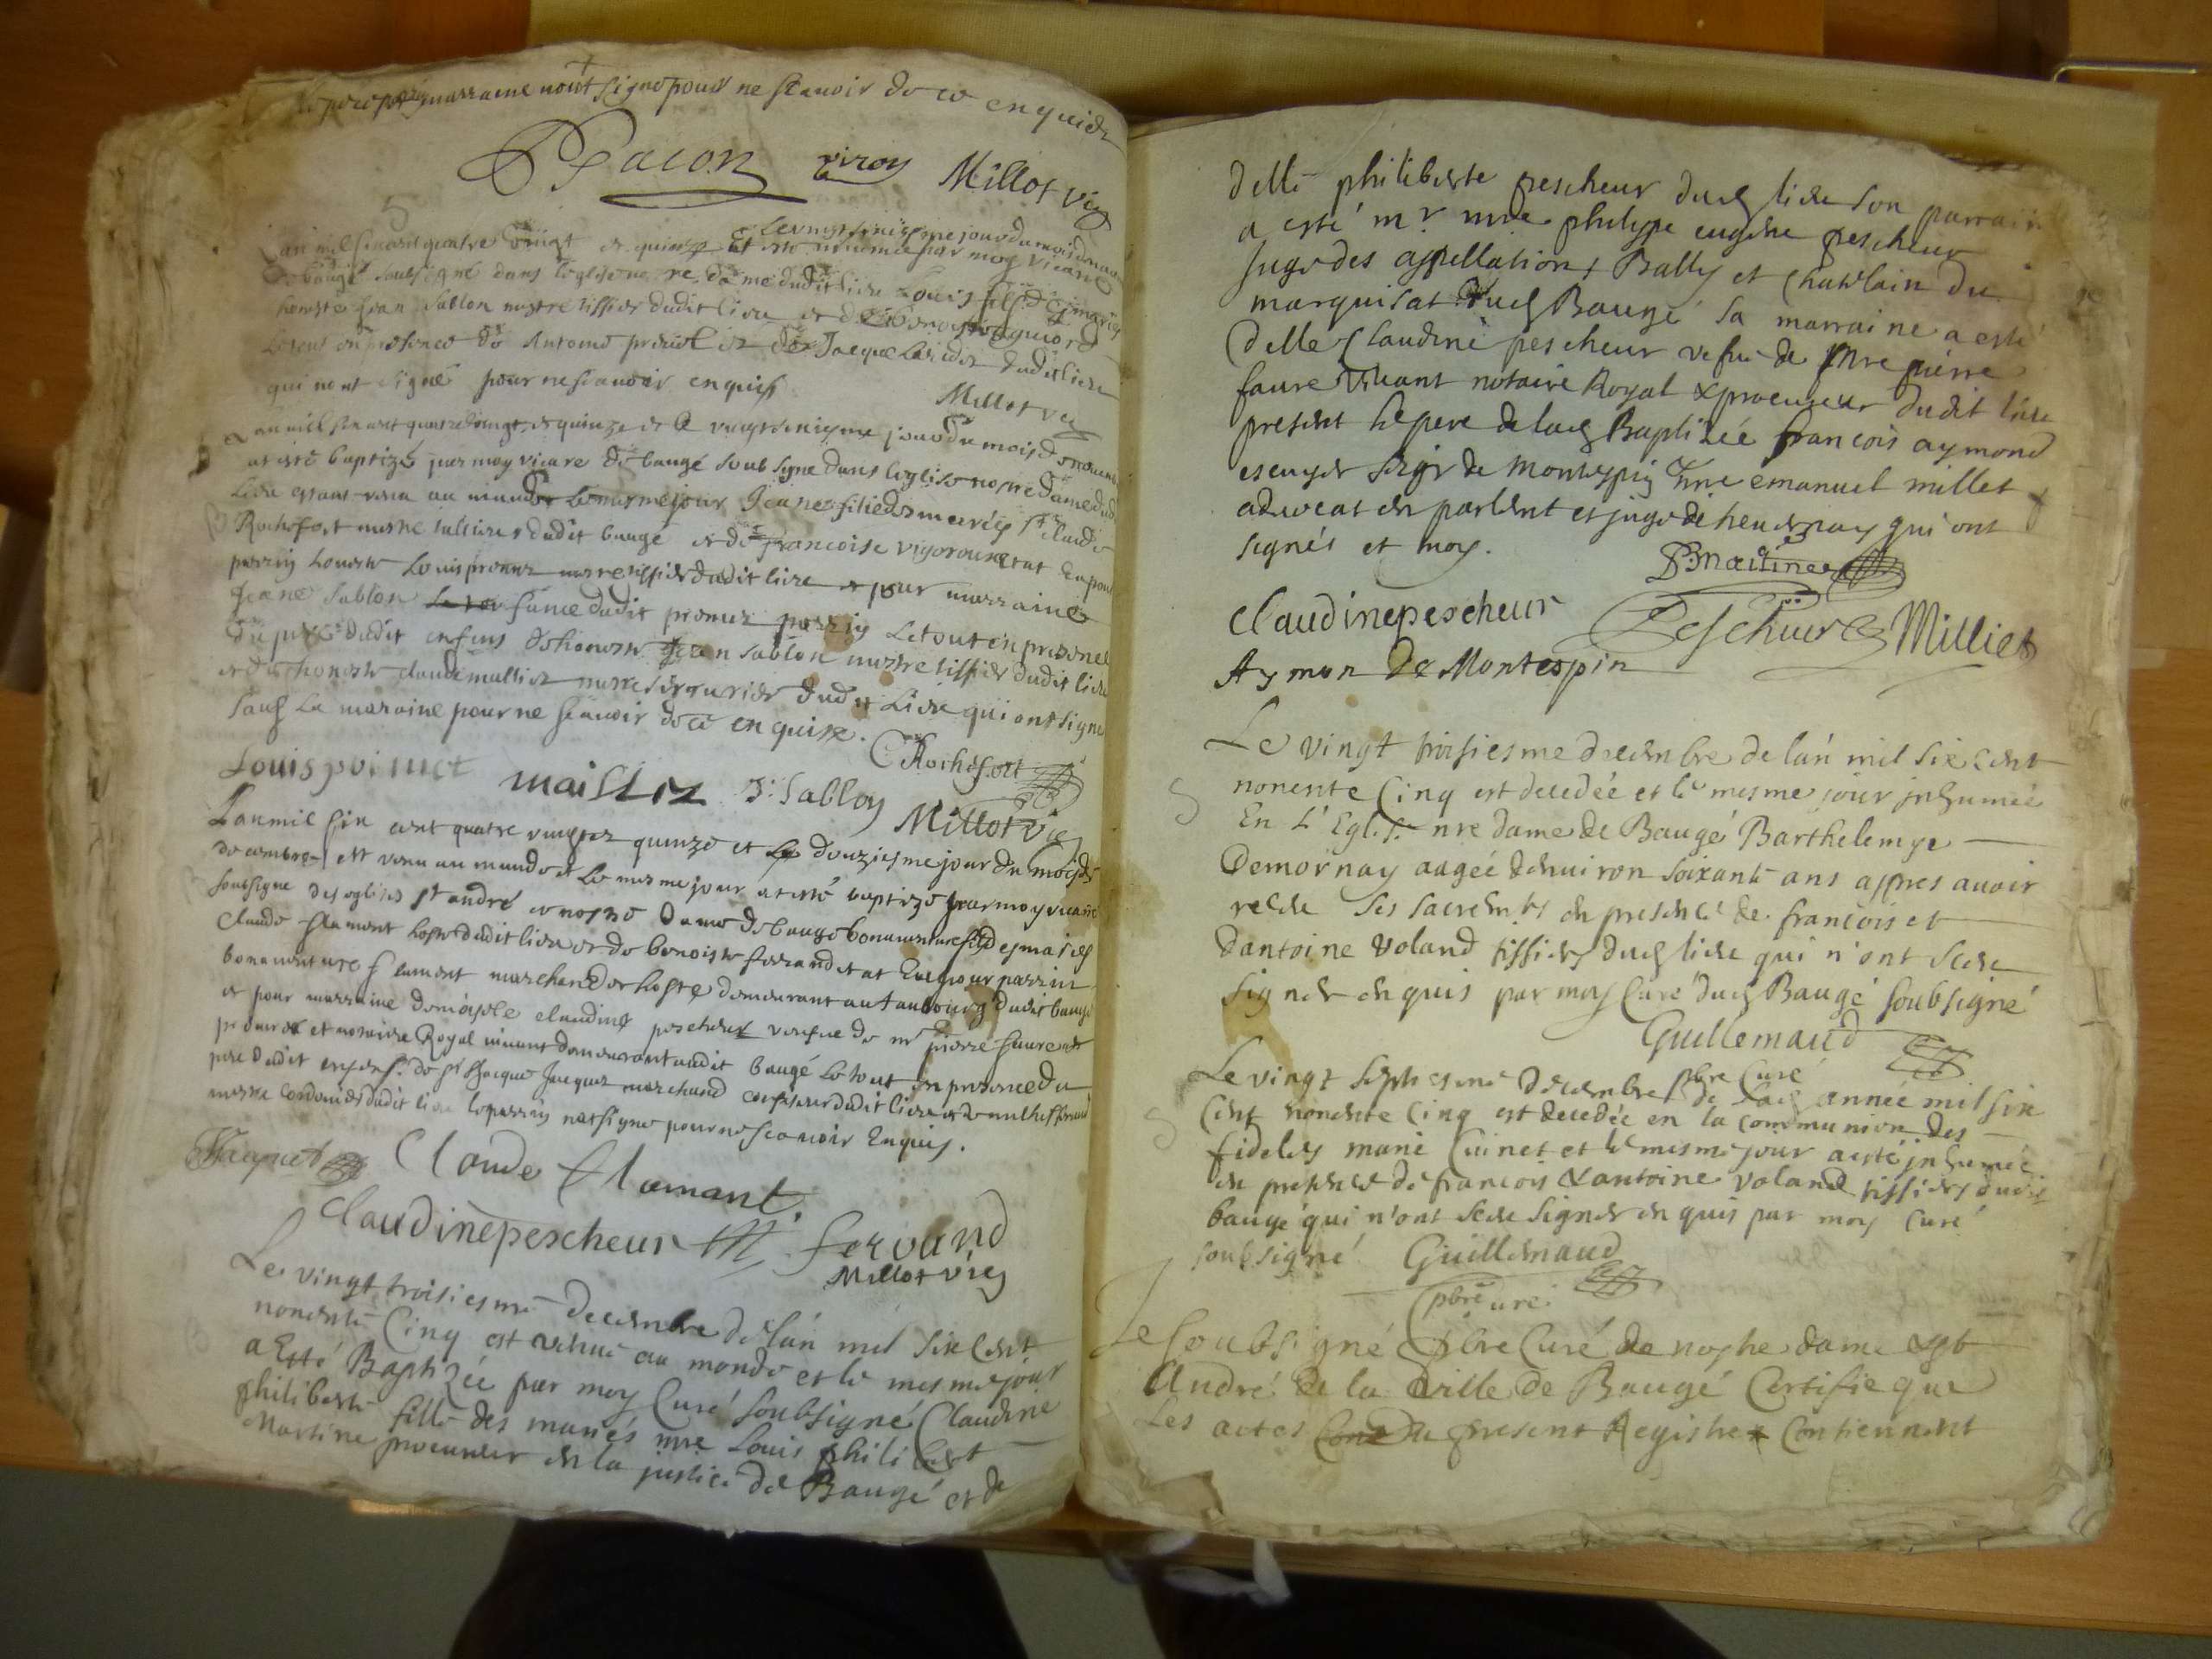 marraine nont signé pour ne scavoir de ce enquis
Pacon viroy Millot vic
Lan mil six cent quatre vingt et quinze et le vingt sixiesme jour du mois de
de baugé soubsigné dans leglise nre dame dudit lieu Louis
honeste Jean Sablon maistre tissier dudit lieu et de
le tout en presence de Antoine et de Jacque dudit lieu
qui nont signé pour ne scavoir enquis
Millot vic
Lan mil six cent quatre vingt et quinze et le vingt sixiesme jour du mois de novembre
at esté baptizé par moy vicaire de baugé soubsigné dans leglise nostre dame dud
lieu estant venu au monde le mesme jour Jeane fille des mariés Sr Claude
Rochefort maistre tailleur dudit baugé et de francoise vigoroux etat eu pour
parrin honeste Louis promet maistre tissier dudit lieu et pour marraine
Jeane Sablon fame dudit promet parrin Le tout en presence
du pere dudit enfens de honeste Jean Sablon maistre tissier dudit lieu
et de honeste claude mallier maistre serrurier dudit Lieu qui ont signé
sauf La maraine pour ne scavoir de ce enquise.
CRochefort
Louis promet maillier J: Sablon Millot vic
Lan mil six cent quatre vingtz et quinze et le douziesme jour du mois de
decembre est venu au monde et le mesme jour at esté baptizé par moy vicaire
soubsigné des eglises st andré et nostre dame de baugé bonaventure fils des mariés
Claude flamant hoste dudit lieu et de benoiste ferrand et at Eu pour parrin
bonaventure flamant marchand et hoste demeurant au faubourg dudit baugé
et pour marraine demoiselle claudine pescheur veufve de mr pierre faure
procureur et notaire Royal vivant demeurant audit baugé le tout en presence du
pere dudit enfens de sr Jacque Jaquet marchand dudit lieu et de
maistre cordonier dudit lieu le parrin nat signé pour ne scavoir Enquis.
Jaquet Claude flamant
Claudine pescheur ferrand
Millot vic
Le vingt troisiesme decembre de lan mil six cent
nonente Cinq est venue au monde et le mesme jour
a Esté Baptizée par moy Curé soubsigné Claudine
philiberte fille des mariés mre Louis philibert
Martine procureur en la justice de Baugé et de
delle philiberte pescheur dud lieu son parrain
a esté mr mre philippe eugene pescheur
juge des appellations Bally et chatelain du
marquisat dud Baugé sa marraine a esté
delle Claudine pescheur vefue de mre pierre
faure vivant notaire Royal & procureur dudit lieu
present le pere de lad Baptizée francois aymond
escuyer seigr de montespin & mre emanuel millet
aduocat en parlent et juge de qui ont
signés et moy.
PMartine
Claudine pescheur Pescheur Milliet
Aymon de Montespin
Le vingt troisiesme decembre de lan mil six cent
nonente Cinq est decedée et le mesme jour jnhumée
En L'Eglise nre dame de Baugé Barthelemye
Demornay aagée denuiron soixante ans appres auoir
receu ses sacrements en presence de francois et
dantoine voland tissiers dud lieu qui n'ont sceu
signer enquis par moy Curé dud Baugé soubsigné
Guillemaud
pbre Curé
Le vingt septiesme decembre de lad année mil six
Cent nonente Cinq est decedée en la communion des
fideles marie Cuinet et le mesme jour a esté jnhumée
en presence de francois & antoine voland tissiers dudit
baugé qui n'ont sceu signer enquis par moy Curé
soubsigné Guillemaud
pbre Curé
Je soubsigné pbre Curé de nostre dame & st
André de la ville de Baugé Certifie que
Les actes du present Registre Contiennent